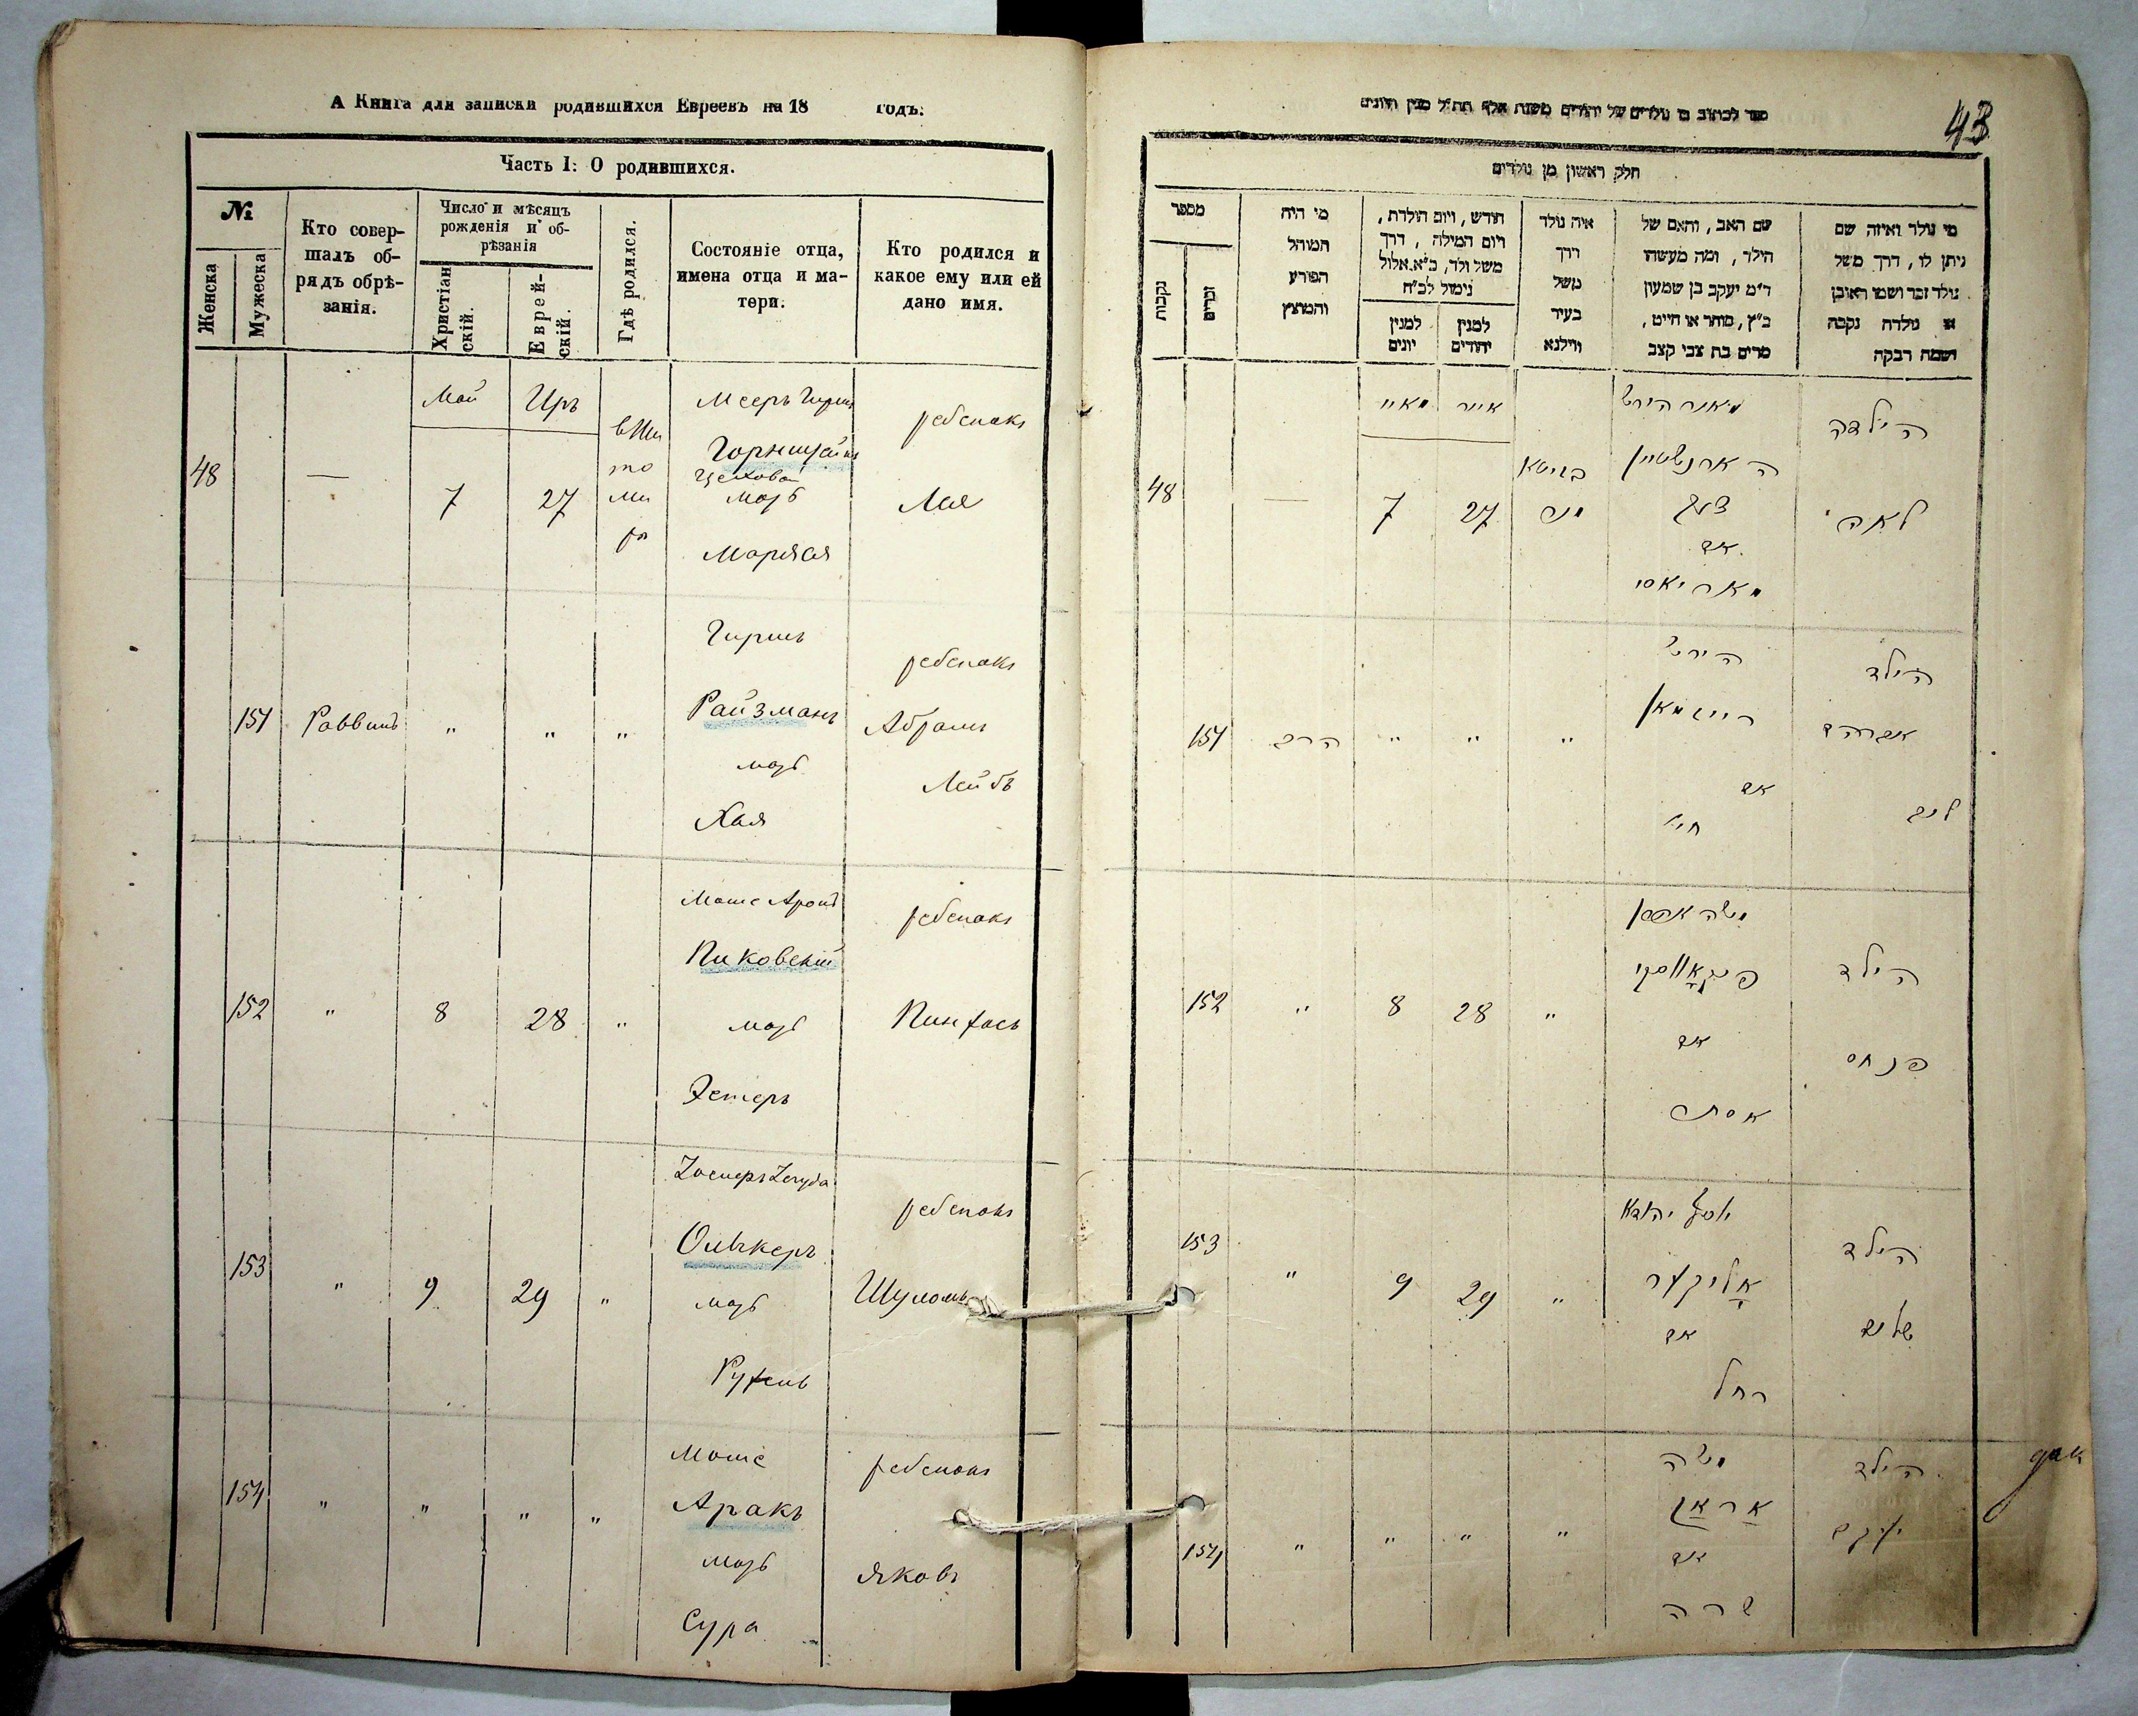 А Книга для записки родившихся Евреевъ на 18 годъ.
Часть I: О родившихся.
№
Женска
Мужеска
Кто совер-
шалъ об-
рядъ обрѣ-
занія.
Число и мѣсяцъ
рожденія и об-
рѣзанія
Христіан
скій.
Еврей-
скій.
Гдѣ родился.
Состояніе отца,
имена отца и ма-
тери.
Кто родился и
какое ему или ей
дано имя.
48
—
Май
7
Иръ
27
в Жи
то
ми
рѣ
Мееръ Гирш
Горнштейн
Цеховой
мать
Марьяся
ребенокъ
Лая
151
Раввинъ
"
"
"
Гиршъ
Райзманъ
мать
Хая
ребенокъ
Абрамъ
Лейбъ
152
"
8
28
"
Моше Аронъ
Пиковскій
мать
Эстеръ
ребенокъ
Пинхасъ
153
"
9
29
"
Оливкеръ
мать
Рухель
ребенокъ
Шуломъ
154
"
"
"
"
Моше
Аракъ
мать
Сура
ребенокъ
Яковъ
43
ספר לכתוב בו נולדים של יהודים משנת אלף תת״ל מנין היונים
חלק ראשון מן נולדים
מספר
נקבות
זכרים
מי היה
המוהל
הפורע
והמוצץ
חודש, ויום הולדת,
ויום המילה, דרך
משל ולד, כ״א אלול
נימול לכ״ח
למנין
יונים
למנין
יהודים
איה נולד
דרך
משל
בעיר
ווילנא
שם האב, והאם של
הילד, ומה מעשהו
ד״מ יעקב בן שמעון
כ״ץ, סוחר או חייט,
מרים בת צבי קצב
מי נולד ואיזה שם
ניתן לו, דרך משל
נולד זכר ושמו ראובן
או נולדה נקבה
ושמה רבקה
48
—
מאיי
7
אייר
27
מאיר הירש
הארנשטיין
צעך
אם
מאריאסי
הילדה
לאה
151
הרב
"
"
"
הירש
רייזמאן
אם
חיי
הילד
אברהם
ליב
152
"
8
28
"
משה אהרן
פיקאווסקי
אם
אסתר
הילד
פנחס
153
"
9
29
"
יוסף יהודא
אליווקער
אם
רחל
הילד
שלום
154
"
"
"
"
משה
אראק
אם
שרה
הילד
יעקב